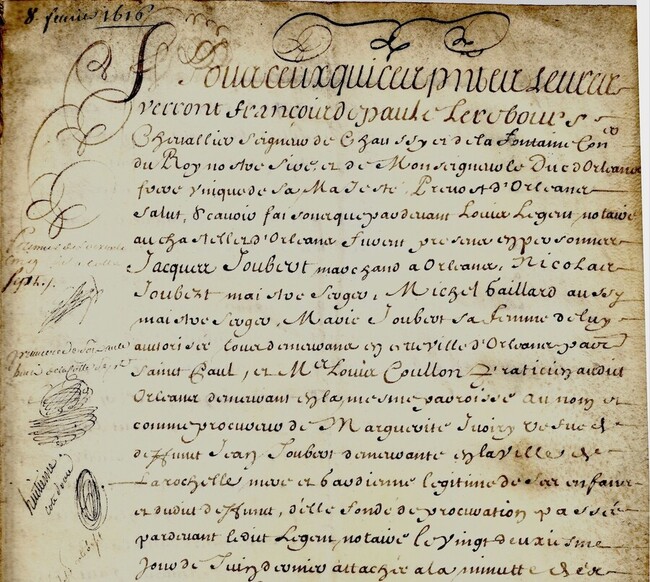 8. fevrier 1616
A Tous ceux qui ces pntes lettres
verront françois de paule Lerebours
Chevallier Seigneur de Chaussy et de la fontaine Coner
du Roy nostre Sire, et de Monseigneur le Duc d'Orleans
frere unique de sa Majesté, Prevost d'Orleans
Salut, Scavoir faisons que pardevant Louis Legent, notaire
au chastellet d'Orleans furent presens en personnes
Jacques Joubert marchand a Orleans, Nicolas
Joubert maistre serger, Michel Gaillard aussy
maistre serger, Marie Joubert sa femme de luy
autorisée tous demeurans en cette ville d'Orleans parr
Saint Paul, et Mer Louis Coullon Praticien audit
Orleans demeurant en la mesme parroisse au nom et
comme procureur de Marguerite Ivoiry vefve de
deffunt Jean Joubert demeurante en la ville de
La rochelle mere et gardienne legitime de ses enfans
et dudit deffunt, d'elle fondé de procuration passée
pardevant ledit Legent, notaire le vingt deuxiesme
Jour de Juin dernier attachée a la minutte des